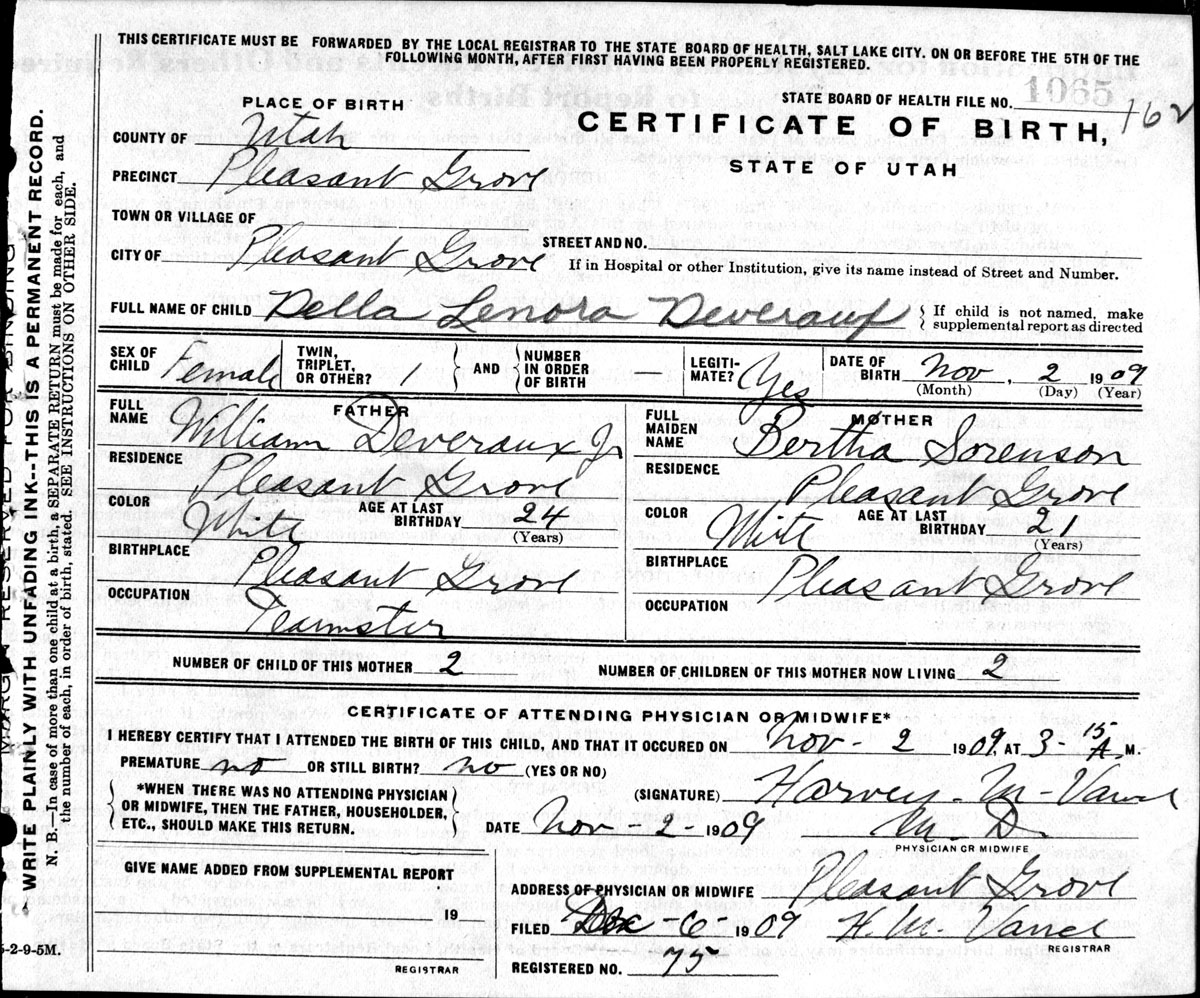 THIS CERTIFICATE MUST BE FORWARDED BY THE LOCAL REGISTRAR TO THE STATE BOARD OF HEALTH, SALT LAKE CITY, ON OR BEFORE THE 5TH OF THE
FOLLOWING MONTH, AFTER FIRST HAVING BEEN PROPERLY REGISTERED.
STATE BOARD OF HEALTH FILE NO. 1065 162
PLACE OF BIRTH
CERTIFICATE OF BIRTH,
STATE OF UTAH
COUNTY OF Utah
PRECINCT Pleasant Grove
TOWN OR VILLAGE OF
STREET AND NO.
CITY OF Pleasant Grove
If in Hospital or other Institution, give its name instead of Street and Number.
FULL NAME OF CHILD Della Lenora Deveraux
If child is not named, make
supplemental report as directed
SEX OF CHILD Female TWIN, TRIPLET, OR OTHER? 1 AND NUMBER IN ORDER OF BIRTH LEGITI- MATE? Yes DATE OF BIRTH Nov, 2 1909
(Month) (Day) (Year)
FATHER
FULL NAME William Deveraux Jr
RESIDENCE Pleasant Grove
COLOR White AGE AT LAST BIRTHDAY 24
(Years)
BIRTHPLACE Pleasant Grove
OCCUPATION Teamster
MOTHER
FULL MAIDEN NAME Bertha Sorenson
RESIDENCE Pleasant Grove
COLOR White AGE AT LAST BIRTHDAY
(Years)
BIRTHPLACE Pleasant Grove
OCCUPATION
NUMBER OF CHILD OF THIS MOTHER 2 NUMBER OF CHILDREN OF THIS MOTHER NOW LIVING 2
CERTIFICATE OF ATTENDING PHYSICIAN OR MIDWIFE*
I HEREBY CERTIFY THAT I ATTENDED THE BIRTH OF THIS CHILD, AND THAT IT OCCURED ON Nov - 2 1909, AT 3-15 A. M.
PREMATURE no OR STILL BIRTH? no (YES OR NO)
*WHEN THERE WAS NO ATTENDING PHYSICIAN
OR MIDWIFE, THEN THE FATHER, HOUSEHOLDER,
ETC., SHOULD MAKE THIS RETURN.
(SIGNATURE) Harvey - M -
DATE Nov - 2 - 1909 M. D.
PHYSICIAN OR MIDWIFE
GIVE NAME ADDED FROM SUPPLEMENTAL REPORT
19
REGISTRAR
ADDRESS OF PHYSICIAN OR MIDWIFE Pleasant Grove
FILED Dec - 6 - 1909 H. M.
REGISTRAR
REGISTERED NO. 75
MARGIN RESERVED FOR BINDING
WRITE PLAINLY WITH UNFADING INK--THIS IS A PERMANENT RECORD.
N. B.—In case of more than one child at a birth, a SEPARATE RETURN must be made for each, and
the number of each, in order of birth, stated. SEE INSTRUCTIONS ON OTHER SIDE.
5-2-9-5M.